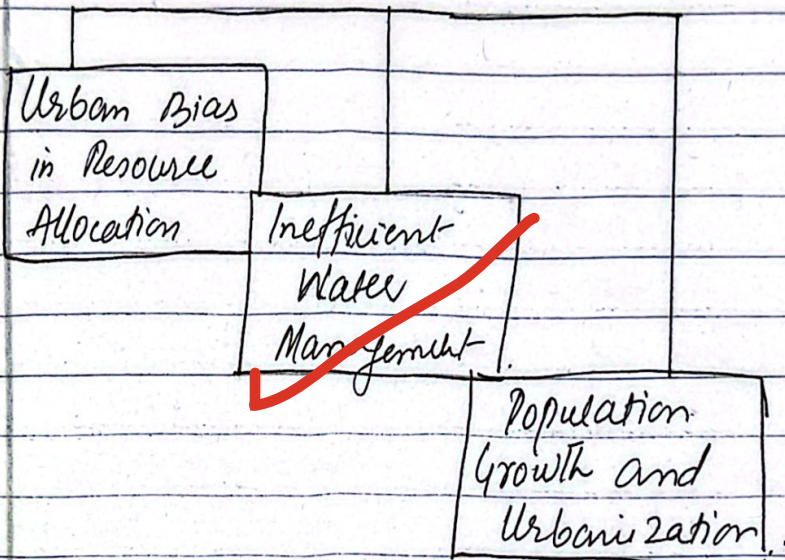 Urban Bias
in Resource
Allocation
Inefficient
Water
Management
Population
Growth and
Urbanization